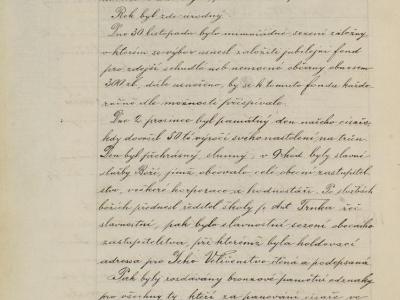 Rok byl zde úrodný.
Dne 30 listopadu bylo mimořádné sezení záložny,
v kterém se výbor usnesl založiti jubilejní fond
pro zdejší chudé neb nemocné občany obnosem
300 zl., dále usnešeno, by se k tomuto fondu každo-
ročně dle možnosti přispívalo.
Dne 2 prosince byl památný den našeho císaře,
kdy dovršil 50 té výročí svého nastolení na trůn.
Den byl překrásný slunný, v 9 hod byly slavné
služby Boží, jimž obcovalo celé obecní zastupitel-
stvo, veškeré korporace a hodnostáři. Po službách
božích přednesl ředitel školy p. Ant Trnka řeč
slavnostní, pak bylo slavnostní sezení obecního
zastupitelstva, při kterémž byla holdovací
adressa pro Jeho Veličenstvo čtena a podepsána.
Pak byly rozdávány bronzové pamětní odznaky
pro všechny ty, kteří za panování císaře ve